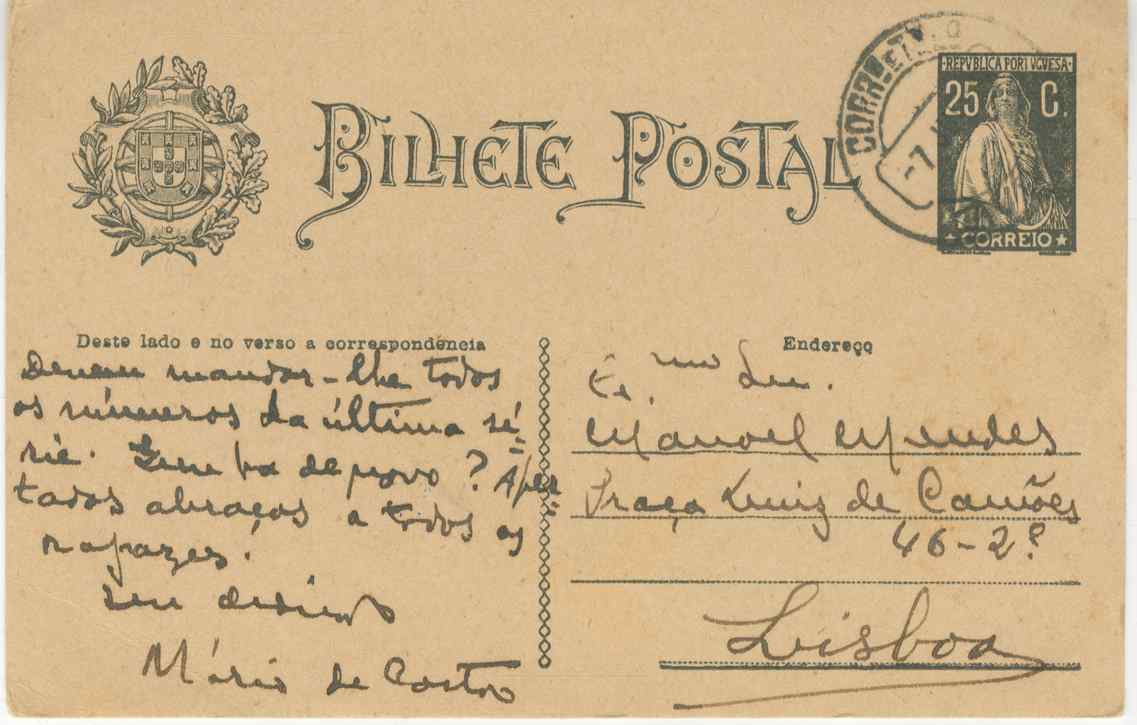 BILHETE POSTAL
CORREIO
REPVBLICA PORTUGUESA
25 C.
CORREIO
Deste lado e no verso a correspondência
Devem mandar-lhe todos
os números da última sé-
rie. Que há de novo? Aper-
tados abraços a todos os
rapazes.
seu
Mário de Castro
Endereço
Ex.mo Snr.
Manoel Mendes
Praça Luiz de Camões
46-2º
Lisboa